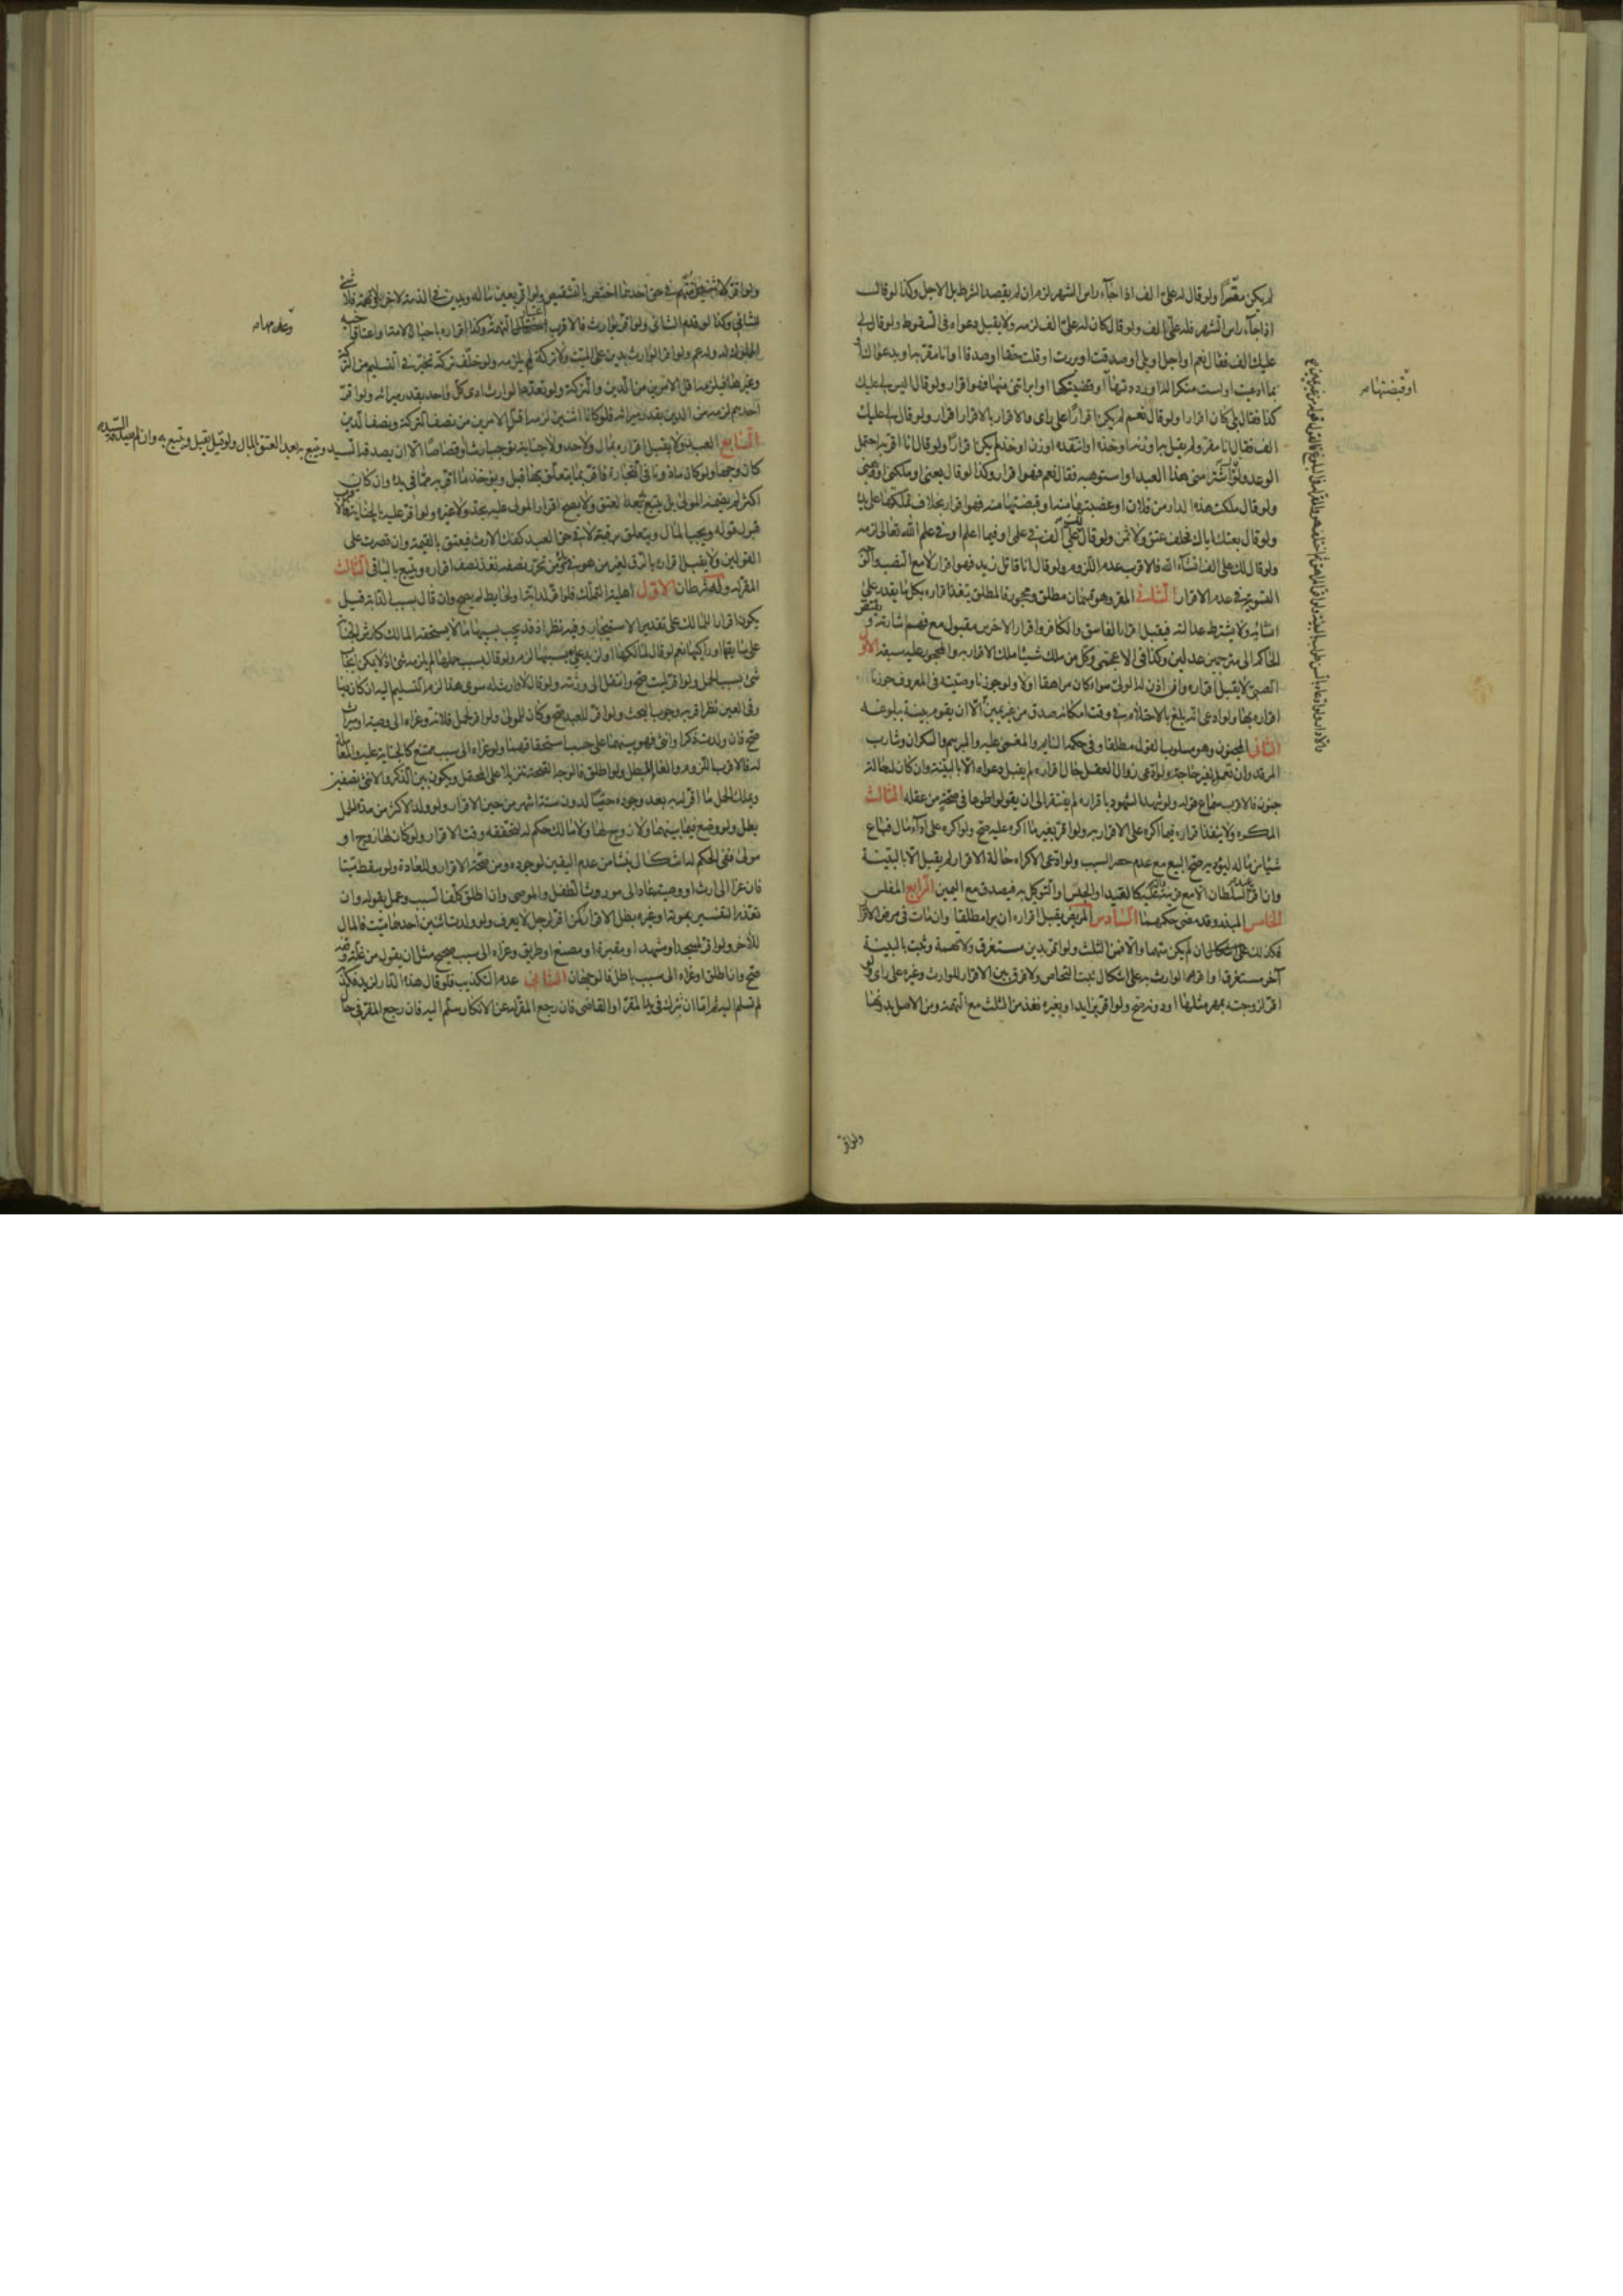 لم يكن مقرّا ولو قال له علىّ الف اذا جاء راس الشهر لزم ان لم يقصد الشرط بل الاجل وكذا لو قال
اذا جاء راس الشهر فله علىّ الف ولو قال كان له علىّ الف لزمه ولا يقبل دعواه فى السقوط ولو قال لى
عليك الف فقال نعم او اجل او بلى او صدقت او بررت او قلت حقا او صدقا او انا مقر به او بدعواك او
بما ادعيت او لست منكرا له او رددتها او قضيتكها او ابراتنى منها فهو اقرار ولو قال اليس لى عليك
كذا فقال بلى كان اقرارا ولو قال نعم لم يكن اقرارا على راى والاقرار بالاقرار اقرار ولو قال لى عليك
الف فقال انا مقر ولم يقل به او زنه او خذه او انتقده او زن او خذ لم يكن اقرارا ولو قال انا اقر به احتمل
الوعد ولو قال اشتر منى هذا العبد او استوهبه فقال نعم فهو اقرار وكذا لو قال بعنى او ملكنى او هبنى
ولو قال ملكت هذه الدار من فلان او غصبتها منه او قبضتها منه فهو اقرار بخلاف تملكتها على يده
ولو قال بعتك اباك فحلف عتق ولا ثمن ولو قال لك علىّ الف فى علمى او فيما اعلم او فى علم الله تعالى لزمه
ولو قال لك علىّ الف ان شاء الله فالاقرب عدم اللزوم ولو قال انا قاتل زيد فهو اقرار لا مع النصب والوجه
التسوية فى عدم الاقرار الثانى المقر وهو قسمان مطلق ومحجور فالمطلق ينفذ اقراره بكل ما يقدر على
انشائه ولا يشترط عدالته فيقبل اقرار الفاسق والكافر واقرار الاخرس مقبول مع فهم اشارته ويفتقر
الحاكم الى مترجمين عدلين وكذا فى الاعجمى وكل من ملك شيئا ملك الاقرار به والمحجور عليه ستة الاول
الصبى لا يقبل اقراره وان اذن له الولى سواء كان مراهقا او لا ولو جوزنا وصيته فى المعروف جوزنا
اقراره بها ولو ادعى انه بلغ بالاحتلام فى وقت امكانه صدق من غير يمين الا ان يقوم بينة ببلوغه
الثانى المجنون وهو مسلوب القول مطلقا وفى حكمه النايم والمغمى عليه والمبرسم والسكران وشارب
المرقد وان تعمد لغير حاجة ولو ادعى زوال العقل حال اقراره لم يقبل دعواه الا بالبينة وان كان له حالة
جنون فالاقرب سماع قوله ولو شهد الشهود باقراره لم يفتقر الى ان يقولوا طوعا فى صحة من عقله الثالث
المكره ولا ينفذ اقراره فيما اكره على الاقرار به ولو اقر بغير ما اكره عليه صح ولو اكره على اداء مال فباع
شيئا من ماله ليؤديه صح البيع مع عدم حصر السبب ولو ادعى الاكراه حالة الاقرار لم يقبل الا بالبينة
وان اقر عند السلطان الا مع قرينة دالة كالقيد او الحبس او التوكيل به فيصدق مع اليمين الرابع المفلس
الخامس المبذر وقد مضى حكمهما السادس المريض يقبل اقراره ان برا مطلقا وان مات فى مرض الاقرار
فكذلك ان لم يكن متهما والا فمن الثلث ولو اقر بدين مستغرق ولا تهمة وثبت بالبينة
آخر مستغرق او اقر به الوارث به على اشكال ثبت التحاص ولا فرق بين الاقرار للوارث وغيره على راى ولو
اقر لزوجته بمهر مثلها او دونه صح ولو اقر بزايد او بغيره نفذ من الثلث مع التهمة ومن الاصل بدونها
او قبضتها صه
ولو اقر
ولو اقر لاثنين متهم فى حق احدهما اختص بالتشقيص ولو اقر بعين ماله وبدين فى الذمة لاخر ولا تهمة فلا شئ
للثانى وكذا لو قدم الثانى ولو اقر لوارث فالاقرب اعتبار التهمة وكذا اقراره باحبال الامة او اعتاق اخيه
المملوك له ولد عم ولو اقر الوارث بدين على الميت ولا تركة لم يلزمه ولو خلف تركة تخير فى التسليم من التركة
وغيرها فيلزمه اقل الامرين من الدين والتركة ولو تعدد الوارث ادى كل واحد بقدر ميراثه ولو اقر
احدهم لزمه من الدين بقدر ميراثه فلو كانا اثنين لزمه اقل الامرين من نصف التركة ونصف الدين
السابع العبد ولا يقبل اقراره بمال ولا حد ولا جناية توجب ارشا او قصاصا الا ان يصدقه السيد ويتبع به بعد العتق بالمال ولو قيل يقبل ويتبع به وان لم يصدقه السيد
كان وجها ولو كان ماذونا فى التجارة فاقر بما يتعلق بها قبل ويؤخذ ما اقر به مما فى يده وان كان
اكثر لم يضمنه المولى بل يتبع به بعد العتق ولا يصح اقرار المولى عليه بحد ولا غيره ولو اقر عليه بالجناية فالاقرب
قبول قوله ويجب المال ويتعلق برقبته لا فى حق العبد كفك الارث فيعتق بالقيمة وان قصرت على
القولين ولا يقبل اقراره بالرق لغير من هو فى يده ومن تحرر نصفه نفذ نصف اقراره ويتبع بالباقى الثالث
المقر له وله شرطان الاول اهلية التملك فلو اقر لدابة او لحايط لم يصح وان قال بسبب الدابة قيل
يكون اقرارا للمالك على تقدير الاستيجار وفيه نظر اذ قد يجب بسببها ما لا يستحقه المالك كارش الجناية
على سايقها او راكبها نعم لو قال لمالكها او لزيد علىّ بسببها لزم ولو قال بسبب حملها لم يلزمه شئ اذ لا يمكن ايجاب
شئ بسبب الحمل ولو اقر لميت صح وانتقل الى ورثته ولو قال لا وارث له سوى هذا لزم التسليم اليه ان كان دينا
وفى العين نظر اقربه وجوب البحث ولو اقر للعبد صح وكان للمولى ولو اقر لحمل فلانة وعزاه الى وصية او ميراث
صح فان ولدت ذكرا وانثى فهو بينهما على حسب استحقاقهما ولو عزاه الى سبب ممتنع كالجناية عليه والمعاملة
له فالاقرب اللزوم والغاء المبطل ولو اطلق فالوجه الصحة تنزيلا على المحتمل ويكون بين الذكر والانثى نصفين
ويملك الحمل ما اقر له به بعد وجوده حيا لدون ستة اشهر من حين الاقرار ولو ولد لاكثر من مدة الحمل
بطل ولو وضع فيما بينهما ولا زوج لها ولا مالك حكم له لتحققه وقت الاقرار ولو كان لها زوج او
مولى ففى الحكم له اشكال ينشا من عدم اليقين لوجوده ومن صحة الاقرار وللعادة ولو سقط ميتا
فان عزا الى ارث او وصية عاد الى مورث الطفل والموصى وان اطلق كلف السبب وعمل بقوله وان
تعذر التفسير بموته او غيره بطل الاقرار كمن اقر لرجل لا يعرف ولو ولدت اثنين احدهما ميت فالمال
للآخر ولو اقر لمسجد او مشهد او مقبرة او مصنع او طريق وعزاه الى سبب صحيح مثل ان يقول من غلة وقفه
صح وان اطلق او عزاه الى سبب باطل فالوجهان الثانى عدم التكذيب فلو قال هذه الدار لزيد فكذبه
لم تسلم اليه ثم اما ان تترك فى يد المقر او القاضى فان رجع المقر له عن الانكار سلم اليه فان رجع المقر فى حال